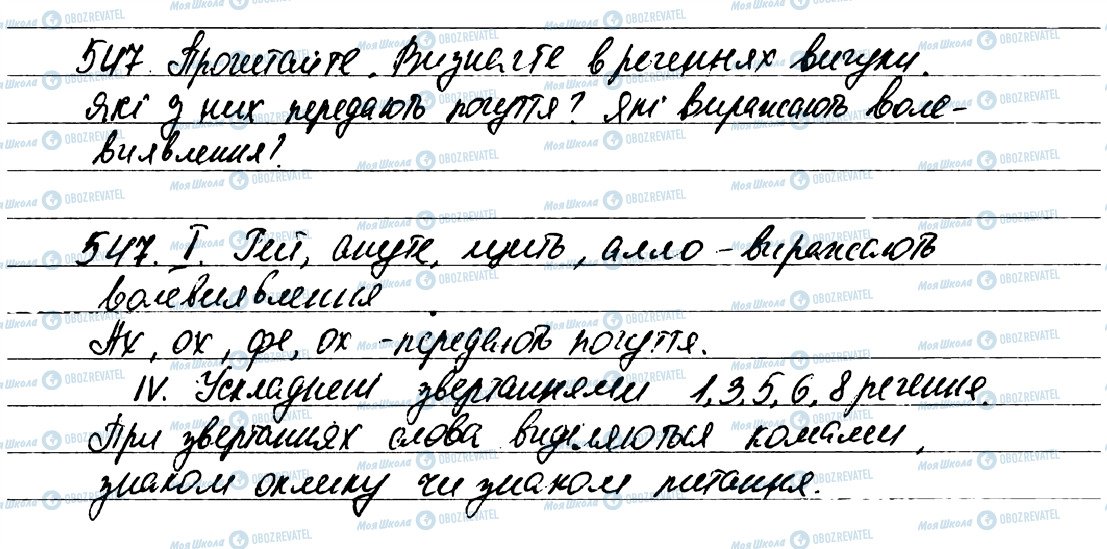 547. Прочитайте. Визначте в реченнях вигуки.
Які з них передають почуття? Які виражають воле-
виявлення?
547. I. Гей, ануте, цить, алло - виражають
волевиявлення
Ах, ох, фе, ох - передають почуття.
IV. Ускладнені звертаннями 1, 3, 5, 6, 8 речення.
При звертаннях слова виділяються комами,
знаком оклику чи знаком питання.